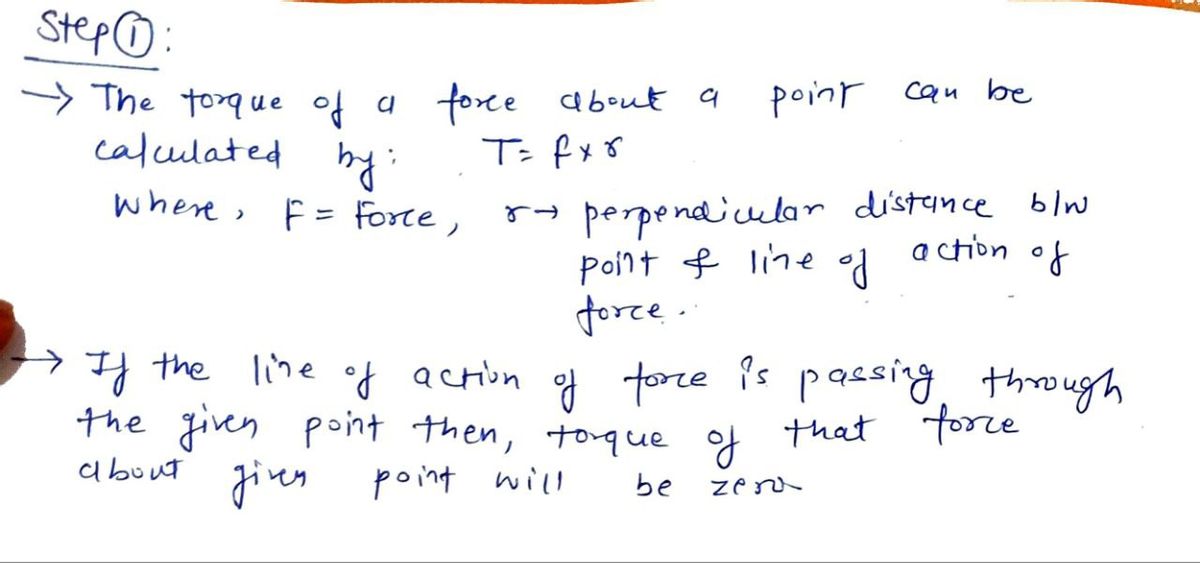 Step ①:
→ The torque of a force about a point can be
calculated by: T = f x r
where, F = Force, r → perpendicular distance b/w
point & line of action of
force.
→ If the line of action of force is passing through
the given point then, torque of that force
about given point will be zero